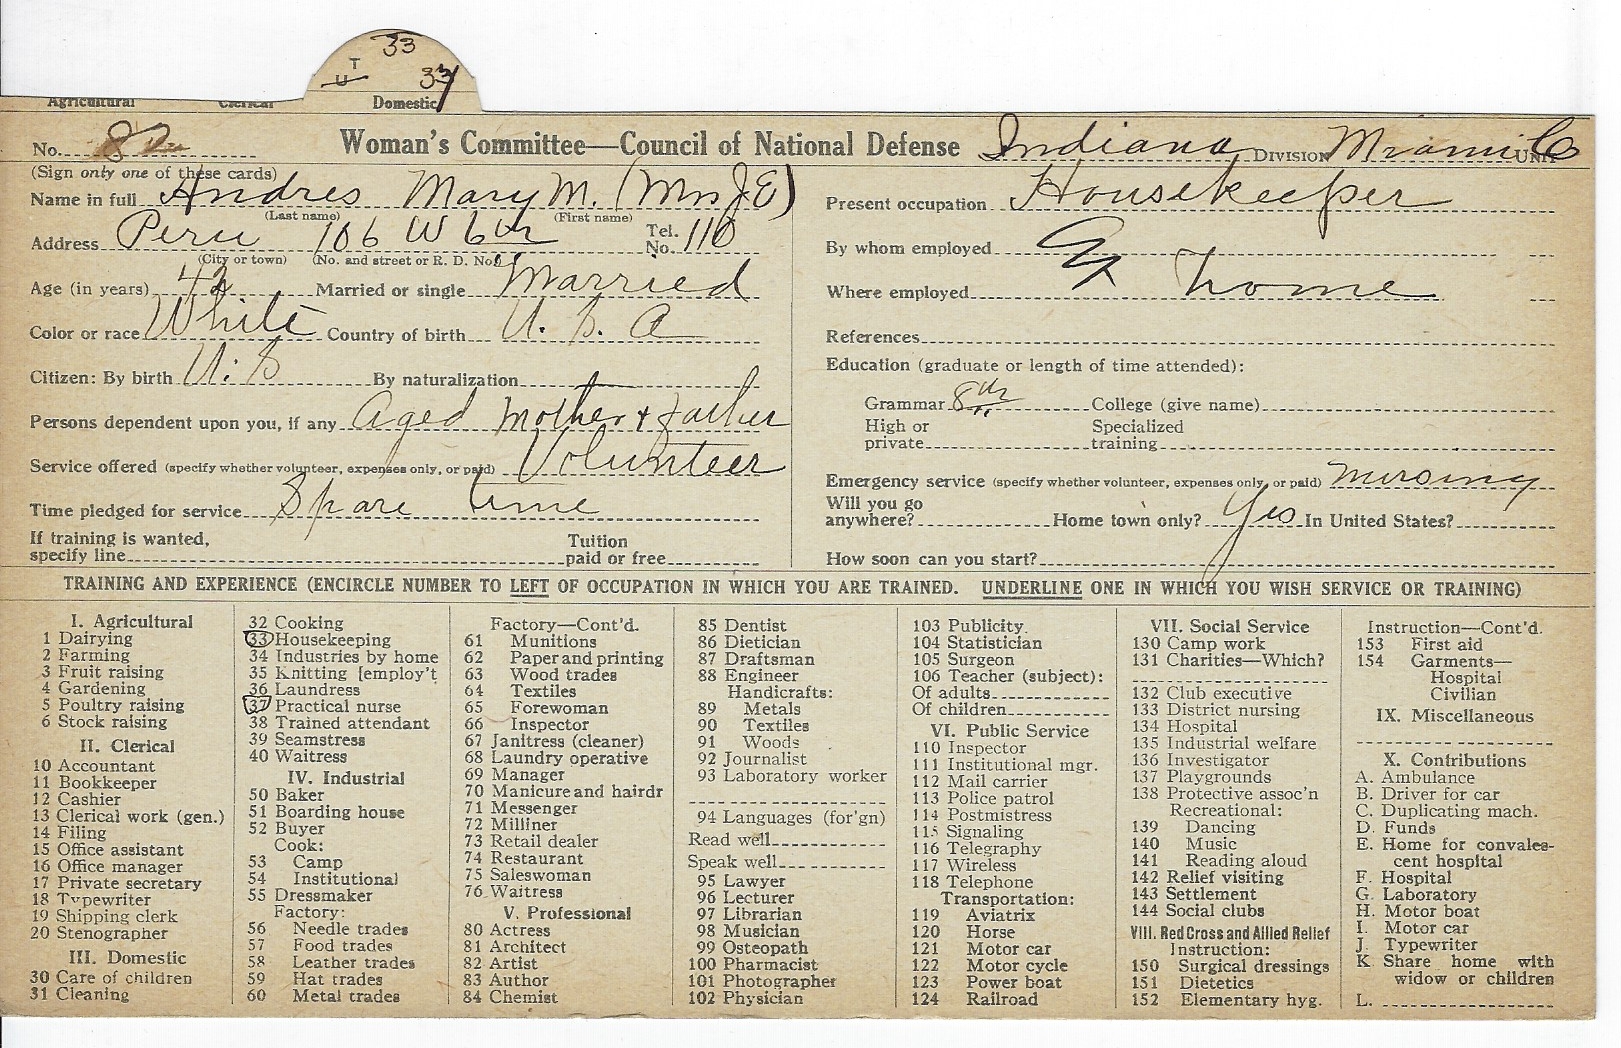 33
T
U 37
Agricultural Clerical Domestic
No. 8 Woman's Committee—Council of National Defense Indiana DIVISION Miami Co UNIT
(Sign only one of these cards)
Name in full Andres Mary M. (Mrs J E)
(Last name) (First name)
Address Peru 106 W 6th Tel. No. 110
(City or town) (No. and street or R. D. No.)
Age (in years) 42 Married or single Married
Color or race White Country of birth U. S. A
Citizen: By birth U. S By naturalization
Persons dependent upon you, if any Aged Mother + Father
Service offered (specify whether volunteer, expenses only, or paid) Volunteer
Time pledged for service Spare time
If training is wanted, specify line Tuition paid or free
Present occupation Housekeeper
By whom employed
Where employed At home
References
Education (graduate or length of time attended):
Grammar 8th College (give name)
High or private Specialized training
Emergency service (specify whether volunteer, expenses only, or paid) nursing
Will you go anywhere? Home town only? Yes In United States?
How soon can you start?
TRAINING AND EXPERIENCE (ENCIRCLE NUMBER TO LEFT OF OCCUPATION IN WHICH YOU ARE TRAINED. UNDERLINE ONE IN WHICH YOU WISH SERVICE OR TRAINING)
I. Agricultural
1 Dairying
2 Farming
3 Fruit raising
4 Gardening
5 Poultry raising
6 Stock raising
II. Clerical
10 Accountant
11 Bookkeeper
12 Cashier
13 Clerical work (gen.)
14 Filing
15 Office assistant
16 Office manager
17 Private secretary
18 Typewriter
19 Shipping clerk
20 Stenographer
III. Domestic
30 Care of children
31 Cleaning
32 Cooking
33 Housekeeping
34 Industries by home
35 Knitting [employ't
36 Laundress
37 Practical nurse
38 Trained attendant
39 Seamstress
40 Waitress
IV. Industrial
50 Baker
51 Boarding house
52 Buyer
Cook:
53 Camp
54 Institutional
55 Dressmaker
Factory:
56 Needle trades
57 Food trades
58 Leather trades
59 Hat trades
60 Metal trades
Factory—Cont'd.
61 Munitions
62 Paper and printing
63 Wood trades
64 Textiles
65 Forewoman
66 Inspector
67 Janitress (cleaner)
68 Laundry operative
69 Manager
70 Manicure and hairdr
71 Messenger
72 Milliner
73 Retail dealer
74 Restaurant
75 Saleswoman
76 Waitress
V. Professional
80 Actress
81 Architect
82 Artist
83 Author
84 Chemist
85 Dentist
86 Dietician
87 Draftsman
88 Engineer
Handicrafts:
89 Metals
90 Textiles
91 Woods
92 Journalist
93 Laboratory worker
94 Languages (for'gn)
Read well
Speak well
95 Lawyer
96 Lecturer
97 Librarian
98 Musician
99 Osteopath
100 Pharmacist
101 Photographer
102 Physician
103 Publicity
104 Statistician
105 Surgeon
106 Teacher (subject):
Of adults
Of children
VI. Public Service
110 Inspector
111 Institutional mgr.
112 Mail carrier
113 Police patrol
114 Postmistress
115 Signaling
116 Telegraphy
117 Wireless
118 Telephone
Transportation:
119 Aviatrix
120 Horse
121 Motor car
122 Motor cycle
123 Power boat
124 Railroad
VII. Social Service
130 Camp work
131 Charities—Which?
132 Club executive
133 District nursing
134 Hospital
135 Industrial welfare
136 Investigator
137 Playgrounds
138 Protective assoc'n
Recreational:
139 Dancing
140 Music
141 Reading aloud
142 Relief visiting
143 Settlement
144 Social clubs
VIII. Red Cross and Allied Relief
Instruction:
150 Surgical dressings
151 Dietetics
152 Elementary hyg.
Instruction—Cont'd.
153 First aid
154 Garments—
Hospital
Civilian
IX. Miscellaneous
X. Contributions
A. Ambulance
B. Driver for car
C. Duplicating mach.
D. Funds
E. Home for convales-
cent hospital
F. Hospital
G. Laboratory
H. Motor boat
I. Motor car
J. Typewriter
K. Share home with
widow or children
L.